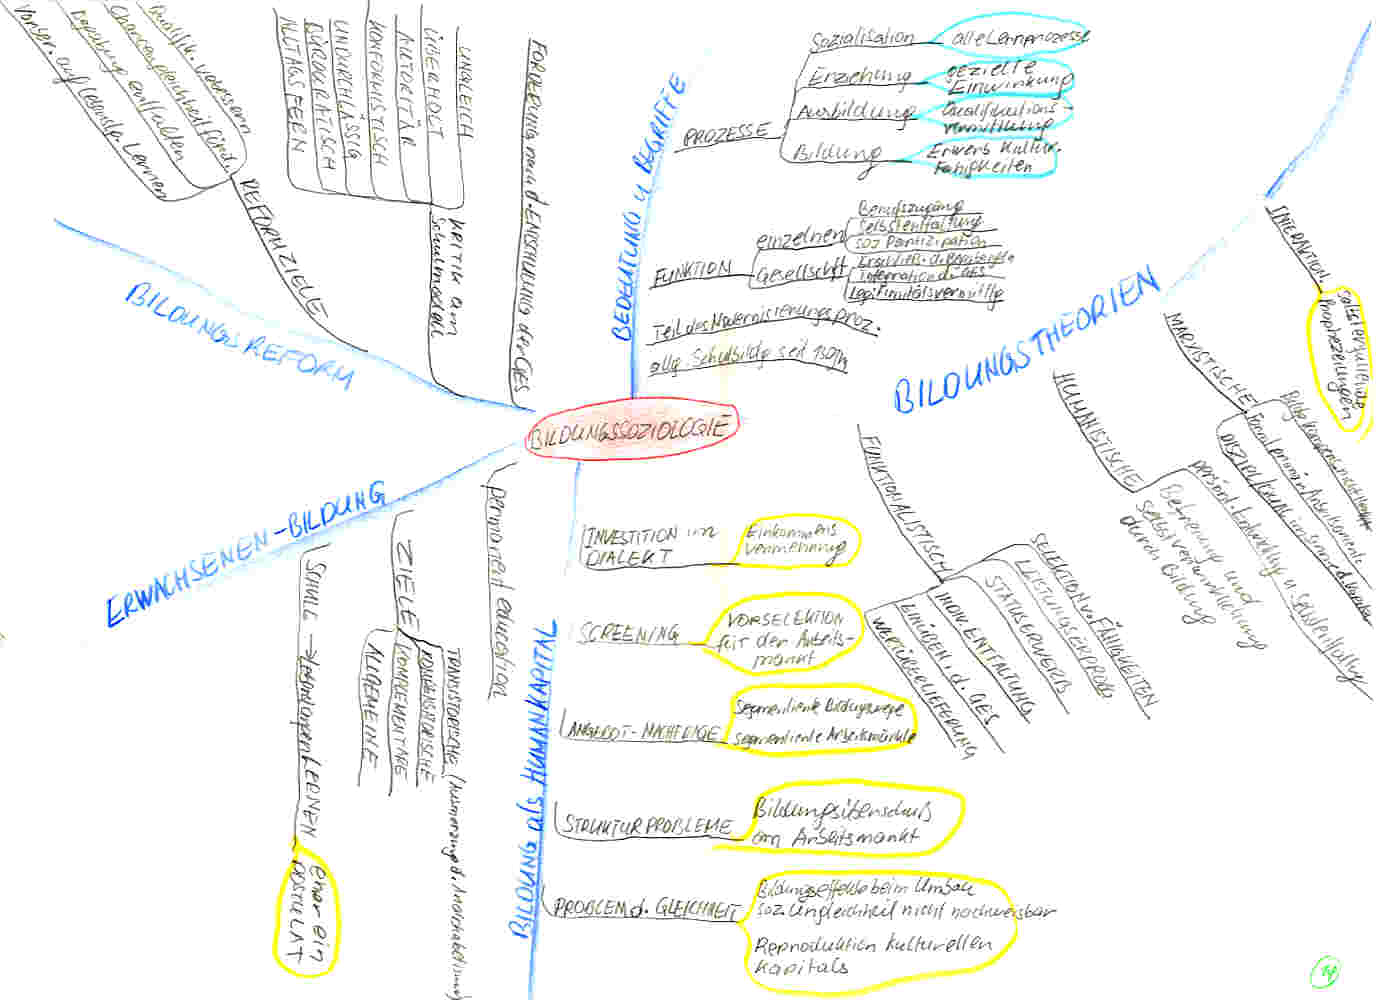 BILDUNGSSOZIOLOGIE
BEDEUTUNG u BEGRIFFE
PROZESSE
Sozialisation
alle Lernprozesse
Erziehung
gezielte
Einwirkung
Ausbildung
Qualifikations-
vermittlung
Bildung
Erwerb Kultur.
Fähigkeiten
FUNKTION
einzelnen
Berufszugang
Selbstentfaltung
soz Partizipation
Gesellschft
Integration d. GES
Legitimitätsvermittlg
Teil des Modernisierungsproz.
allg. Schulbildg seit
BILDUNGSTHEORIEN
INTERAKTION.
selbsterfüllende
Prophezeiungen
MARXISTISCHE
HUMANISTISCHE
persönl. Entwicklg u. Selbstentfaltg
Befreiung und
selbstverwirklichung
durch Bildung
FUNKTIONALISTISCH
SELEKTION v. FÄHIGKEITEN
LEISTUNGSERPROB
STATUSERWERB
INDIV. ENTFALTUNG
EINÜBEN i. d. GES
WERTÜBERLIEFERUNG
BILDUNG als HUMANKAPITAL
INVESTITION im
DIALEKT
Einkommens
vermehrung
SCREENING
VORSELEKTION
für den Arbeits-
markt
ANGEBOT-NACHFRAGE
Segmentierte Bildungswege
segmentierte Arbeitsmärkte
STRUKTURPROBLEME
Bildungsüberschuß
am Arbeitsmarkt
PROBLEM d. GLEICHHEIT
Bildungseffekte beim Umbau
soz Ungleichheit nicht nachweisbar
Reproduktion kulturellen
Kapitals
ERWACHSENEN-BILDUNG
permanent education
ZIELE
TRANSITORISCHE
KOMPLEMENTÄRE
ALLGEMEINE
SCHULE → Lernen lernen
eher ein
POSTULAT
BILDUNGSREFORM
FORDERUNG nach d. ENTSCHULUNG der GES
KRITIK am
Schulmodell
UNGLEICH
ÜBERHOLT
AUTORITÄR
KONFORMISTISCH
UNDURCHLÄSSIG
BÜROKRATISCH
ALLTAGSFERN
REFORMZIELE
Qualifik. verbessern
Chancengleichheit förd.
Begabung entfalten